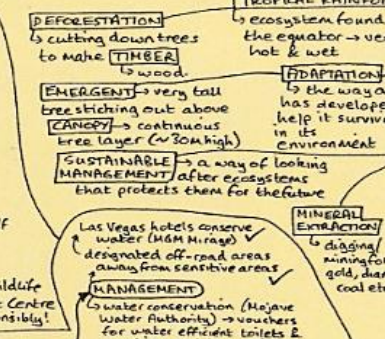 DEFORESTATION
↳ cutting down trees
to make TIMBER
↳ wood.
EMERGENT → very tall
tree stiching out above
CANOPY → continuous
tree layer (~30m high)
SUSTAINABLE MANAGEMENT → a way of looking
after ecosystems
that protects them for the future
TROPICAL RAINFOR
↳ ecosystem found
the equator → ve
hot & wet
ADAPTATION
↳ the way a
has develope
help it surviv
in its
environment
MINERAL
EXTRACTION
↳ digging/
mining for
gold, dia
coal et
Las Vegas hotels conserve
water (MGM Mirage) ✓
designated off-road areas
away from sensitive areas ✓
MANAGEMENT
↳ water conservation (Mojave
Water Authority) → vouchers
for water efficient toilets &
ldlife
Centre
nsibly!